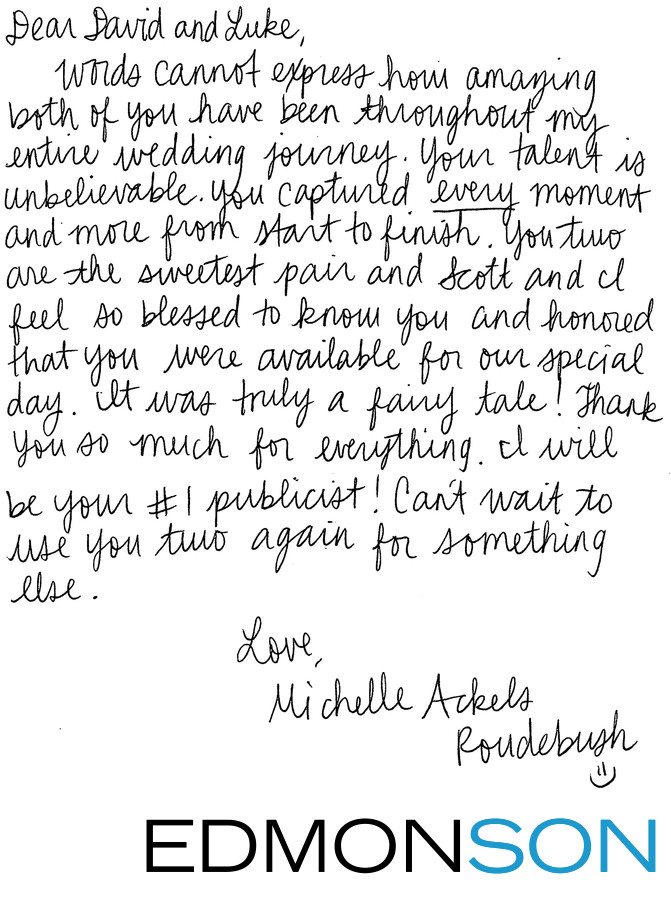 Dear David and Luke,
Words cannot express how amazing
both of you have been throughout my
entire wedding journey. Your talent is
unbelievable. You captured every moment
and more from start to finish. You two
are the sweetest pair and Scott and I
feel so blessed to know you and honored
that you were available for our special
day. It was truly a fairy tale! Thank
you so much for everything. I will
be your #1 publicist! Can't wait to
use you two again for something
else.
Love,
Michelle Ackels
Roudebush
EDMONSON